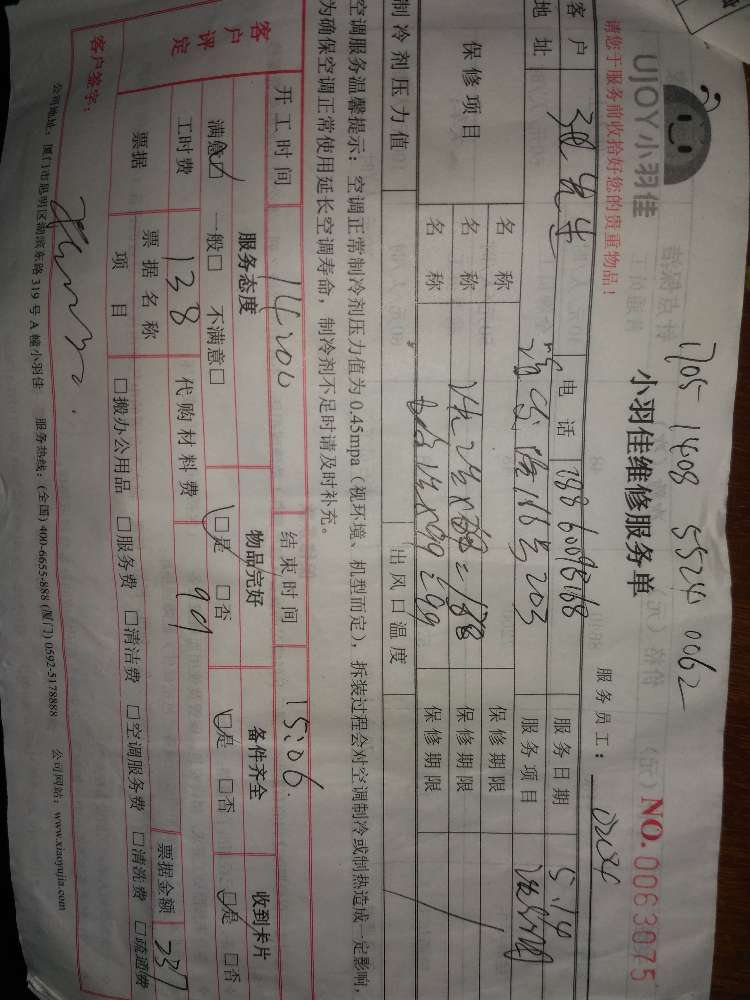 1705-1408 5524 0062
UJOY小羽佳
小羽佳维修服务单
NO.0063075
请您于服务前收拾好您的贵重物品！
服务员工：
客户 先生 电话 服务日期 5.14
地址 服务项目
保修项目 名称 保修期限
名称 保修期限
名称 保修期限
制冷剂压力值 出风口温度
空调服务温馨提示：空调正常制冷剂压力值为0.45mpa（视环境、机型而定），拆装过程会对空调制冷或制热造成一定影响，
为确保空调正常使用延长空调寿命，制冷剂不足时请及时补充。
开工时间 14:00 结束时间 15:06
客户评定 服务态度 物品完好 备件齐全 收到卡片
满意□ 一般□ 不满意□ □是 □否 □是 □否 □是 □否
工时费 138 代购材料费 99
票据 票据名称 票据金额 237
项目 □搬办公用品 □服务费 □清洁费 □空调服务费 □清洗费 □疏通费
客户签字：
公司地址：厦门市思明区湖滨东路319号A幢小羽佳 服务热线：(全国) 400-6655-888 (厦门) 0592-5178888 公司网站：www.xiaoyujia.com